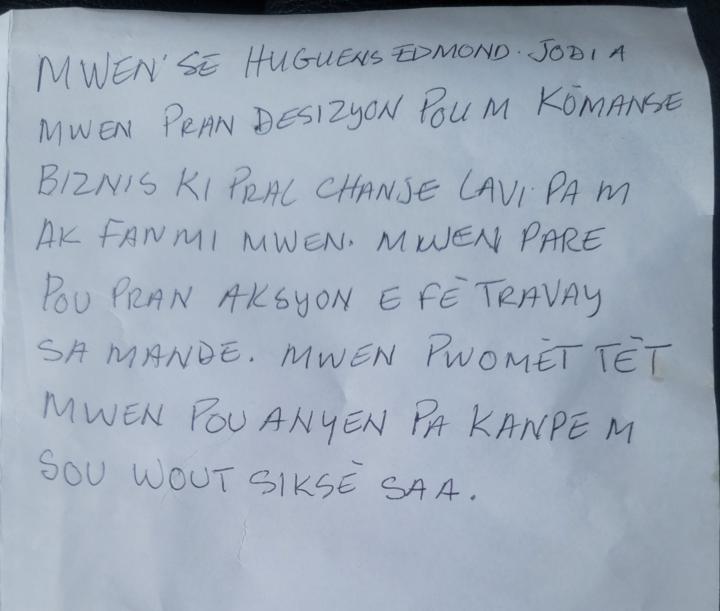 MWEN' SE HUGUENS EDMOND. JODI A
MWEN PRAN DESIZYON POU M KÒMANSE
BIZNIS KI PRAL CHANJE LAVI PA M
AK FANMI MWEN. MWEN PARE
POU PRAN AKSYON E FÈ TRAVAY
SA MANDE. MWEN PWOMÈT TÈT
MWEN POU ANYEN PA KANPE M
SOU WOUT SIKSÈ SAA.